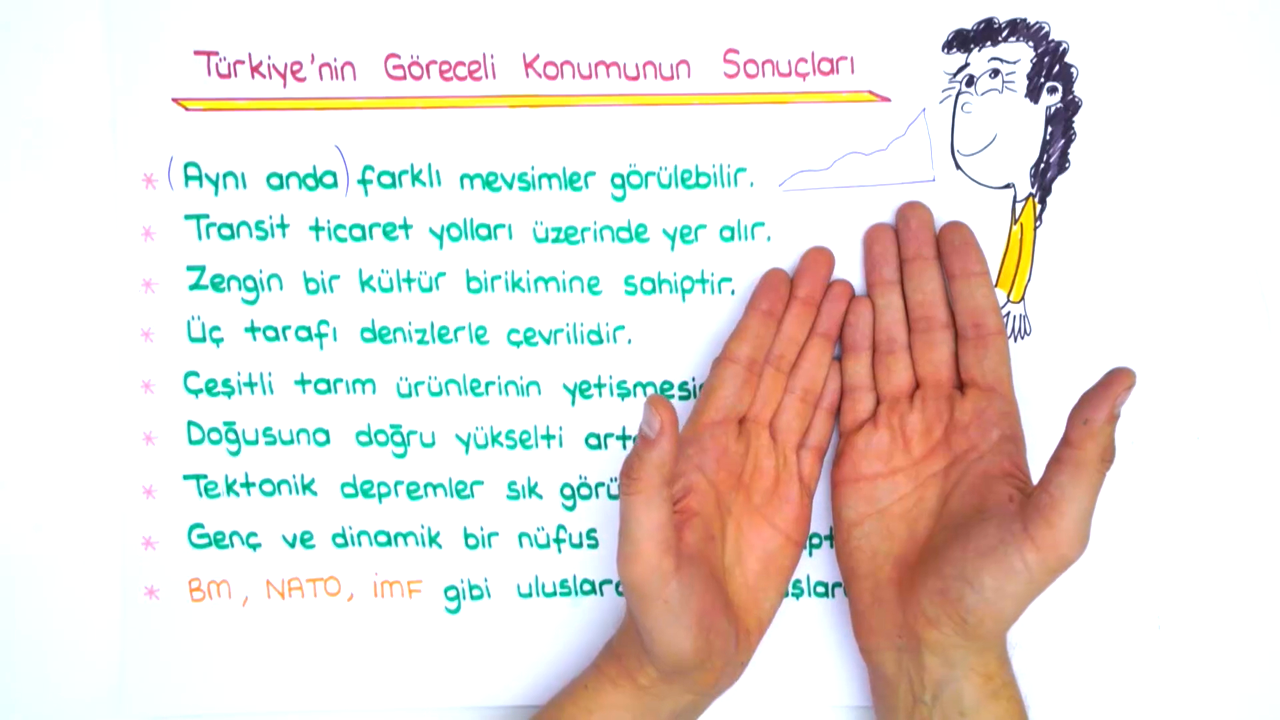 Türkiye'nin Göreceli Konumunun Sonuçları
* (Aynı anda) farklı mevsimler görülebilir.
* Transit ticaret yolları üzerinde yer alır.
* Zengin bir kültür birikimine sahiptir.
* Üç tarafı denizlerle çevrilidir.
* Çeşitli tarım ürünlerinin
* Doğusuna doğru yükselti
* Tektonik depremler sık
* Genç ve dinamik bir nüfus
* BM, NATO, İMF gibi